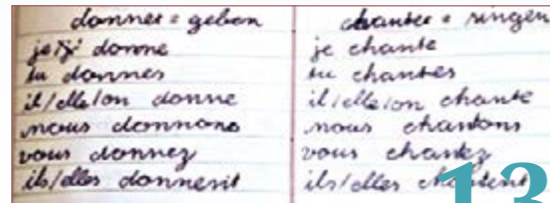 donner = geben
je/j' donne
tu donnes
il/elle/on donne
nous donnons
vous donnez
ils/elles donnent
chanter = singen
je chante
tu chantes
il/elle/on chante
nous chantons
vous chantez
ils/elles chantent
13